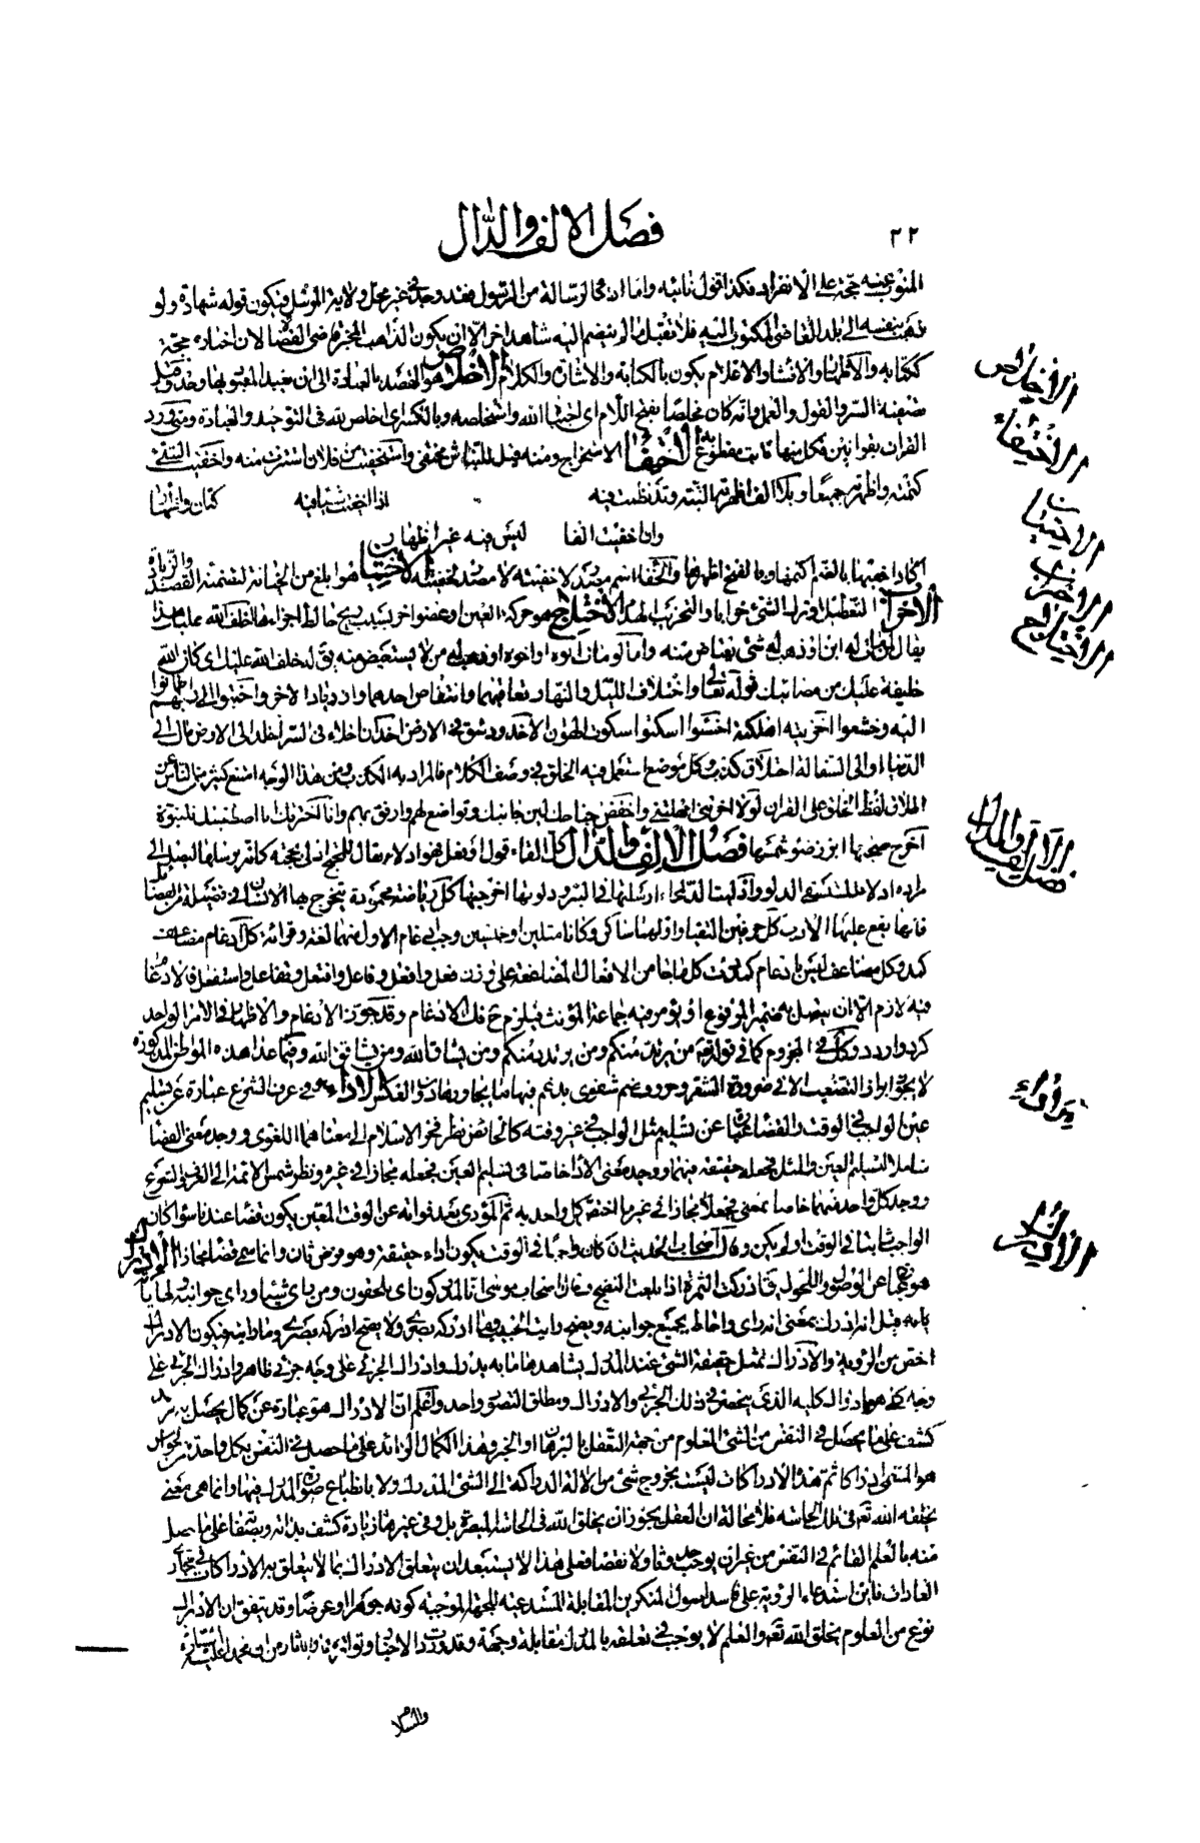 ٢٢
فصل الالف والدال
المنوب عنه حجة على الانفراد فكذا قول نائبه واما اداء الرسالة من الرسول فقد وجد في غير محل ولاية المرسل فيكون قوله شهادة ولو
ذهب بنفسه الى بلد القاضي المكتوب اليه فلا تقبل ما لم ينضم اليه شاهد اخر الا ان يكون الذاهب المخبر قاضي القضاة لان اخباره حجة
ككتابه والاظهار والانشاء والاعلام يكون بالكتابة والاشارة والكلام الاخلاص هو القصد بالعبادة الى ان يعبد المعبود بها وحده وقيل
تصفية السر والقول والعمل وانه كان مخلصا بفتح اللام اى اجتباه الله واستخلصه وبالكسر اى اخلص لله في التوحيد والعبادة ومتى ورد
القران بقراءتين فكل منهما ثابت مقطوع به الاختفاء الاستخراج ومنه قيل للنباش مختفي واستخفيت من فلان استترت منه واخفيت الشئ
كتمته واظهرته جميعا وبلا الف اظهرته البتة وقد نظمت فيه
اذا اخفيت شيئا فيه كتمان واظهار
وان خفيت الفا ليس فيه غير اظهار
اكاد اخفيها بالضم اكتمها وبالفتح اظهرها والخفاء اسم مصدر لاخفيته لا مصدر لخفيته الاختيان هو ابلغ من الخيانة لتضمنه القصد والزيادة
الاخراب التعطيل او ترك الشئ خرابا والتخريب الهدم الاختلاج هو حركة العين او عضو اخر بسبب ريح خالط اجزاءها اخلف الله عليك هذا
يقال لمن مات له ابن او ذهب له شئ يعتاض منه واما لو مات ابوه او اخوه او ذهب له من لا يستعيض منه يق له خلف الله عليك اى كان الله
خليفة عليك من مصابك قوله تعالى واختلاف الليل والنهار تعاقبهما وانتقاص احدهما وازدياد الاخر واخبتوا الى ربهم اطمأنوا
اليه وخشعوا اخزيته اهلكته اخسئوا اسكنوا سكون الهوان الاخدود شق في الارض اخدان اخلاء في السر اخلد الى الارض مال الى
الدنيا او الى السفالة اختلاق كذب وكل موضع استعمل فيه الخلق في وصف الكلام فالمراد به الكذب ومن هذا الوجه امتنع كثير من الناس عن
اطلاق لفظ الخلق على القران لولا اخرتني امهلتني واخفض جناحك لين جانبك وتواضع لهم وارفق بهم وانا اخترتك اصطفيتك للنبوة
اخرج ضحيها ابرز ضوء شمسها فصل الالف والدال كل القاء قول او فعل فهو ادلاء يقال للمحتج ادلى بحجته كانه يرسلها ليصل الى
مراده ادلاء المستسقي الدلو وادليت الدلو اى ارسلتها في البئر ودلوتها اخرجتها كل رياضة محمودة يتخرج بها الانسان في فضيلة من الفضائل
فانها يقع عليها الادب كل حرفين التقيا واولهما ساكن وكانا مثلين او جنسين وجب ادغام الاول منهما لغة وقراءة كل ادغام مضاعف
كمد وكل مضاعف ليس بادغام كمددت كل ما جاء من الافعال المضاعفة على وزن فعل وافعل وفاعل وافتعل وتفاعل واستفعل فالادغام
فيه لازم الا ان يتصل به ضمير المرفوع او يؤمر فيه جماعة المؤنث فيلزم ح فك الادغام وقد جوز الادغام والاظهار في الامر الواحد
كرد واردد وكذا في المجزوم كما في قوله تعالى من يرتد منكم ومن يرتدد منكم ومن يشاق الله ومن يشاقق الله وفيما عدا هذه المواطن المذكورة
لا يجوز ابراز التضعيف الا في ضرورة الشعر
الاداء هو في عرف الشرع عبارة عن تسليم
عين الواجب في الوقت والقضاء عبارة عن تسليم مثل الواجب في غير وقته كالحائض نظر فخر الاسلام الى معناهما اللغوى ووجد معنى القضاء
شاملا لتسليم العين والمثل فجعله حقيقة فيهما ووجد معنى الاداء خاصا في تسليم العين فجعله مجازا في غيره ونظر شمس الائمة الى العرف والشرع
ووجد كل واحد منهما خاصا بمعنى فجعله مجازا في غير ما اختص كل واحد به ثم المؤدى بعد فواته عن الوقت المعين يكون قضاء عندنا سواء كان
الواجب ثابتا في الوقت او لم يكن وقال اصحاب الحديث ان كان واجبا في الوقت يكون اداء حقيقة وهو فرض ثان وانما سمي قضاء مجازا الادراك
هو عبارة عن الوصول واللحوق يق ادركت الثمرة اذا بلغت النضج وقال اصحاب موسى انا لمدركون اى ملحقون ومن راى شيئا وراى جوانبه ونهاياته
يق انه ادرك بمعنى انه راى واحاط بجميع جوانبه ويصح رايت الحبيب وما ادركه بصرى ولا يصح ادركه بصرى وما رايته فيكون الادراك
اخص من الرؤية والادراك تمثل حقيقة الشئ عند المدرك يشاهدها ما به يدرك وادراك الجزئي على وجه جزئي ظاهر وادراك الجزئي على
وجه كلي هو ادراك كليه الذى ينحصر في ذلك الجزئي والادراك ومطلق التصور واحد واعلم ان الادراك هو عبارة عن كمال يحصل به مزيد
كشف على ما يحصل في النفس من الشئ المعلوم من جهة التعقل بالبرهان او الخبر وهذا الكمال الزائد على ما حصل في النفس بكل واحدة من الحواس
هو المسمى ادراكا ثم هذه الادراكات ليست بخروج شئ من الالة الدراكة الى الشئ المدرك ولا بانطباع صورة المدرك فيها وانما هي معنى
يخلقه الله تعم في تلك الحاسة فلا محالة ان العقل يجوز ان يخلق الله في الحاسة المبصرة بل وفي غيرها زيادة كشف بذاته وبصفاته على ما حصل
منه بالعلم القائم في النفس من غير ان يوجب حدوثا ولا نقصا فعلى هذا لا يستبعد ان يتعلق الادراك بما لا يتعلق به الادراكات في مجارى
العادات فاين استدعاء الرؤية على فاسد اصول المنكرين المقابلة المستدعية للجهة الموجبة كونه جوهرا او عرضا وقد تبين ان الادراك
نوع من العلوم يخلق الله تعم والعلم لا يوجب في تعلقه بالمدرك مقابلة وجهة وقد وردت الاخبار وتواترت الاثار من ان محمدا عليه الصلاة
والسلام
الاخلاص
الاختفاء
الاختيان
الاخراب
الاختلاج
فصل الالف والدال
الاداء
الادراك